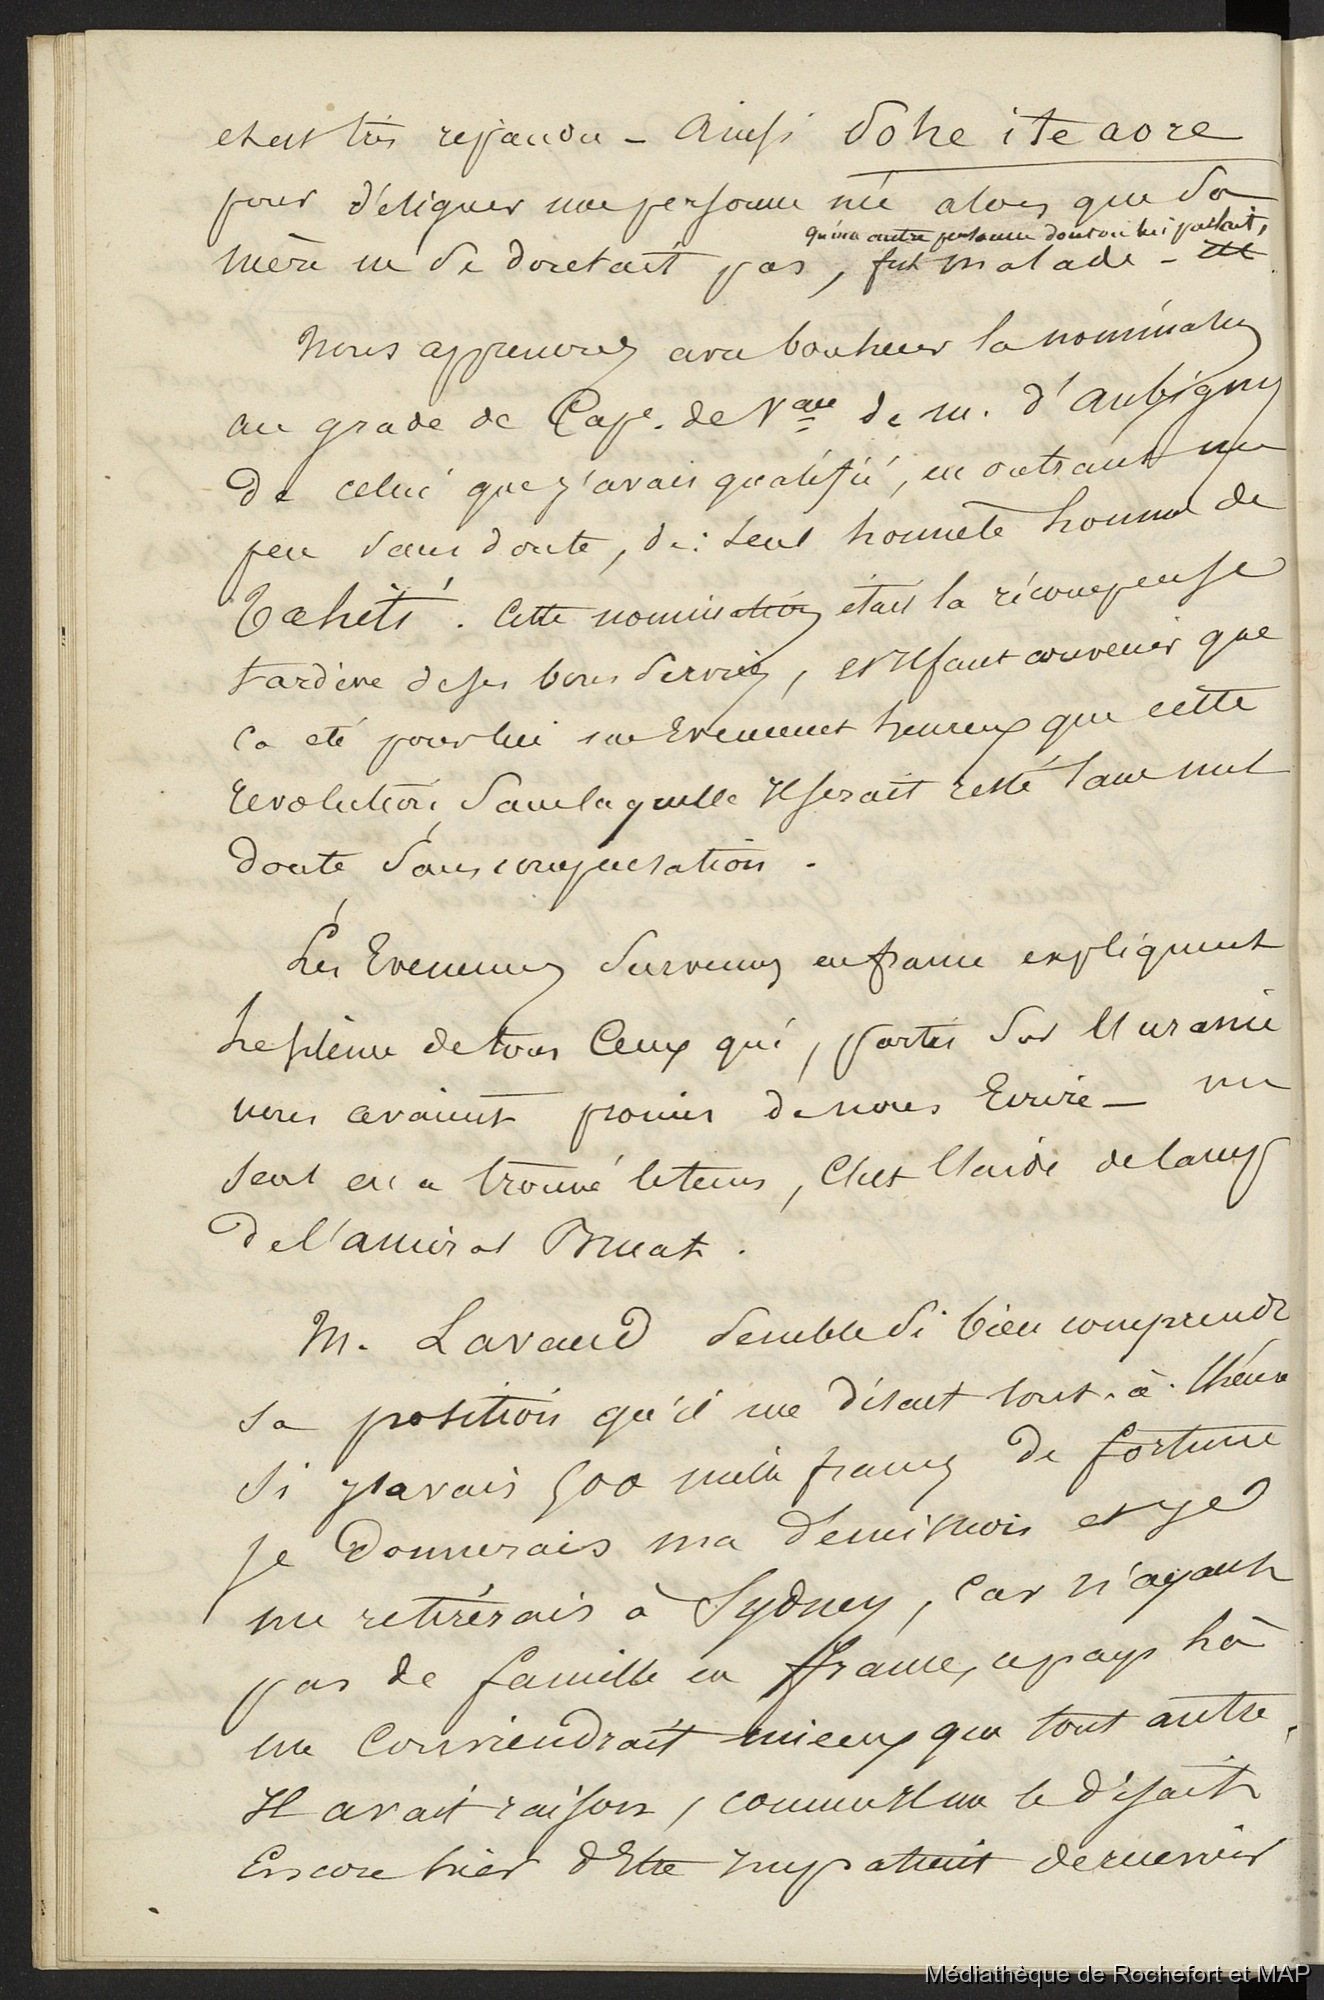 et est très répandu - Ainsi Dohe i te aore
pour désigner une personne née alors que sa
qu'une autre personne dont on lui parlait,
mère ne se doutait pas, fut malade -
Nous apprenons avec bonheur la nomination
au grade de Cape. de Vau de m. d'aubigny
de celui que j'avais qualifié, en outrant un
peu sans doute, de: seul honnête homme de
Tahiti. Cette nomination était la récompense
tardive de ses bons services, et Il faut convenir que
ça été pour lui un Evenement heureux que cette
révolution, sans laquelle Il serait resté sans nul
doute sans compensation.
Les Evenemens survenus en france expliquent
le silence de tous Ceux qui, partis sur l'uranie
nous avaient promis de nous Ecrire - un
seul en a trouvé le tems, C'est l'aide de camp
de l'amiral Bruat.
M. Lavaud semble si bien comprendre
sa position qu'il me disait tout-à-l'heure
si j'avais 500 mille francs de fortune
je donnerais ma démission et je
me retirerais à Sydney, car n'ayant
pas de famille en france, ce pays là
me Conviendrait mieux que tout autre.
Il avait raison, comme Il me le disait
Encore hier d'Etre Impatient de revenir
Médiathèque de Rochefort et MAP